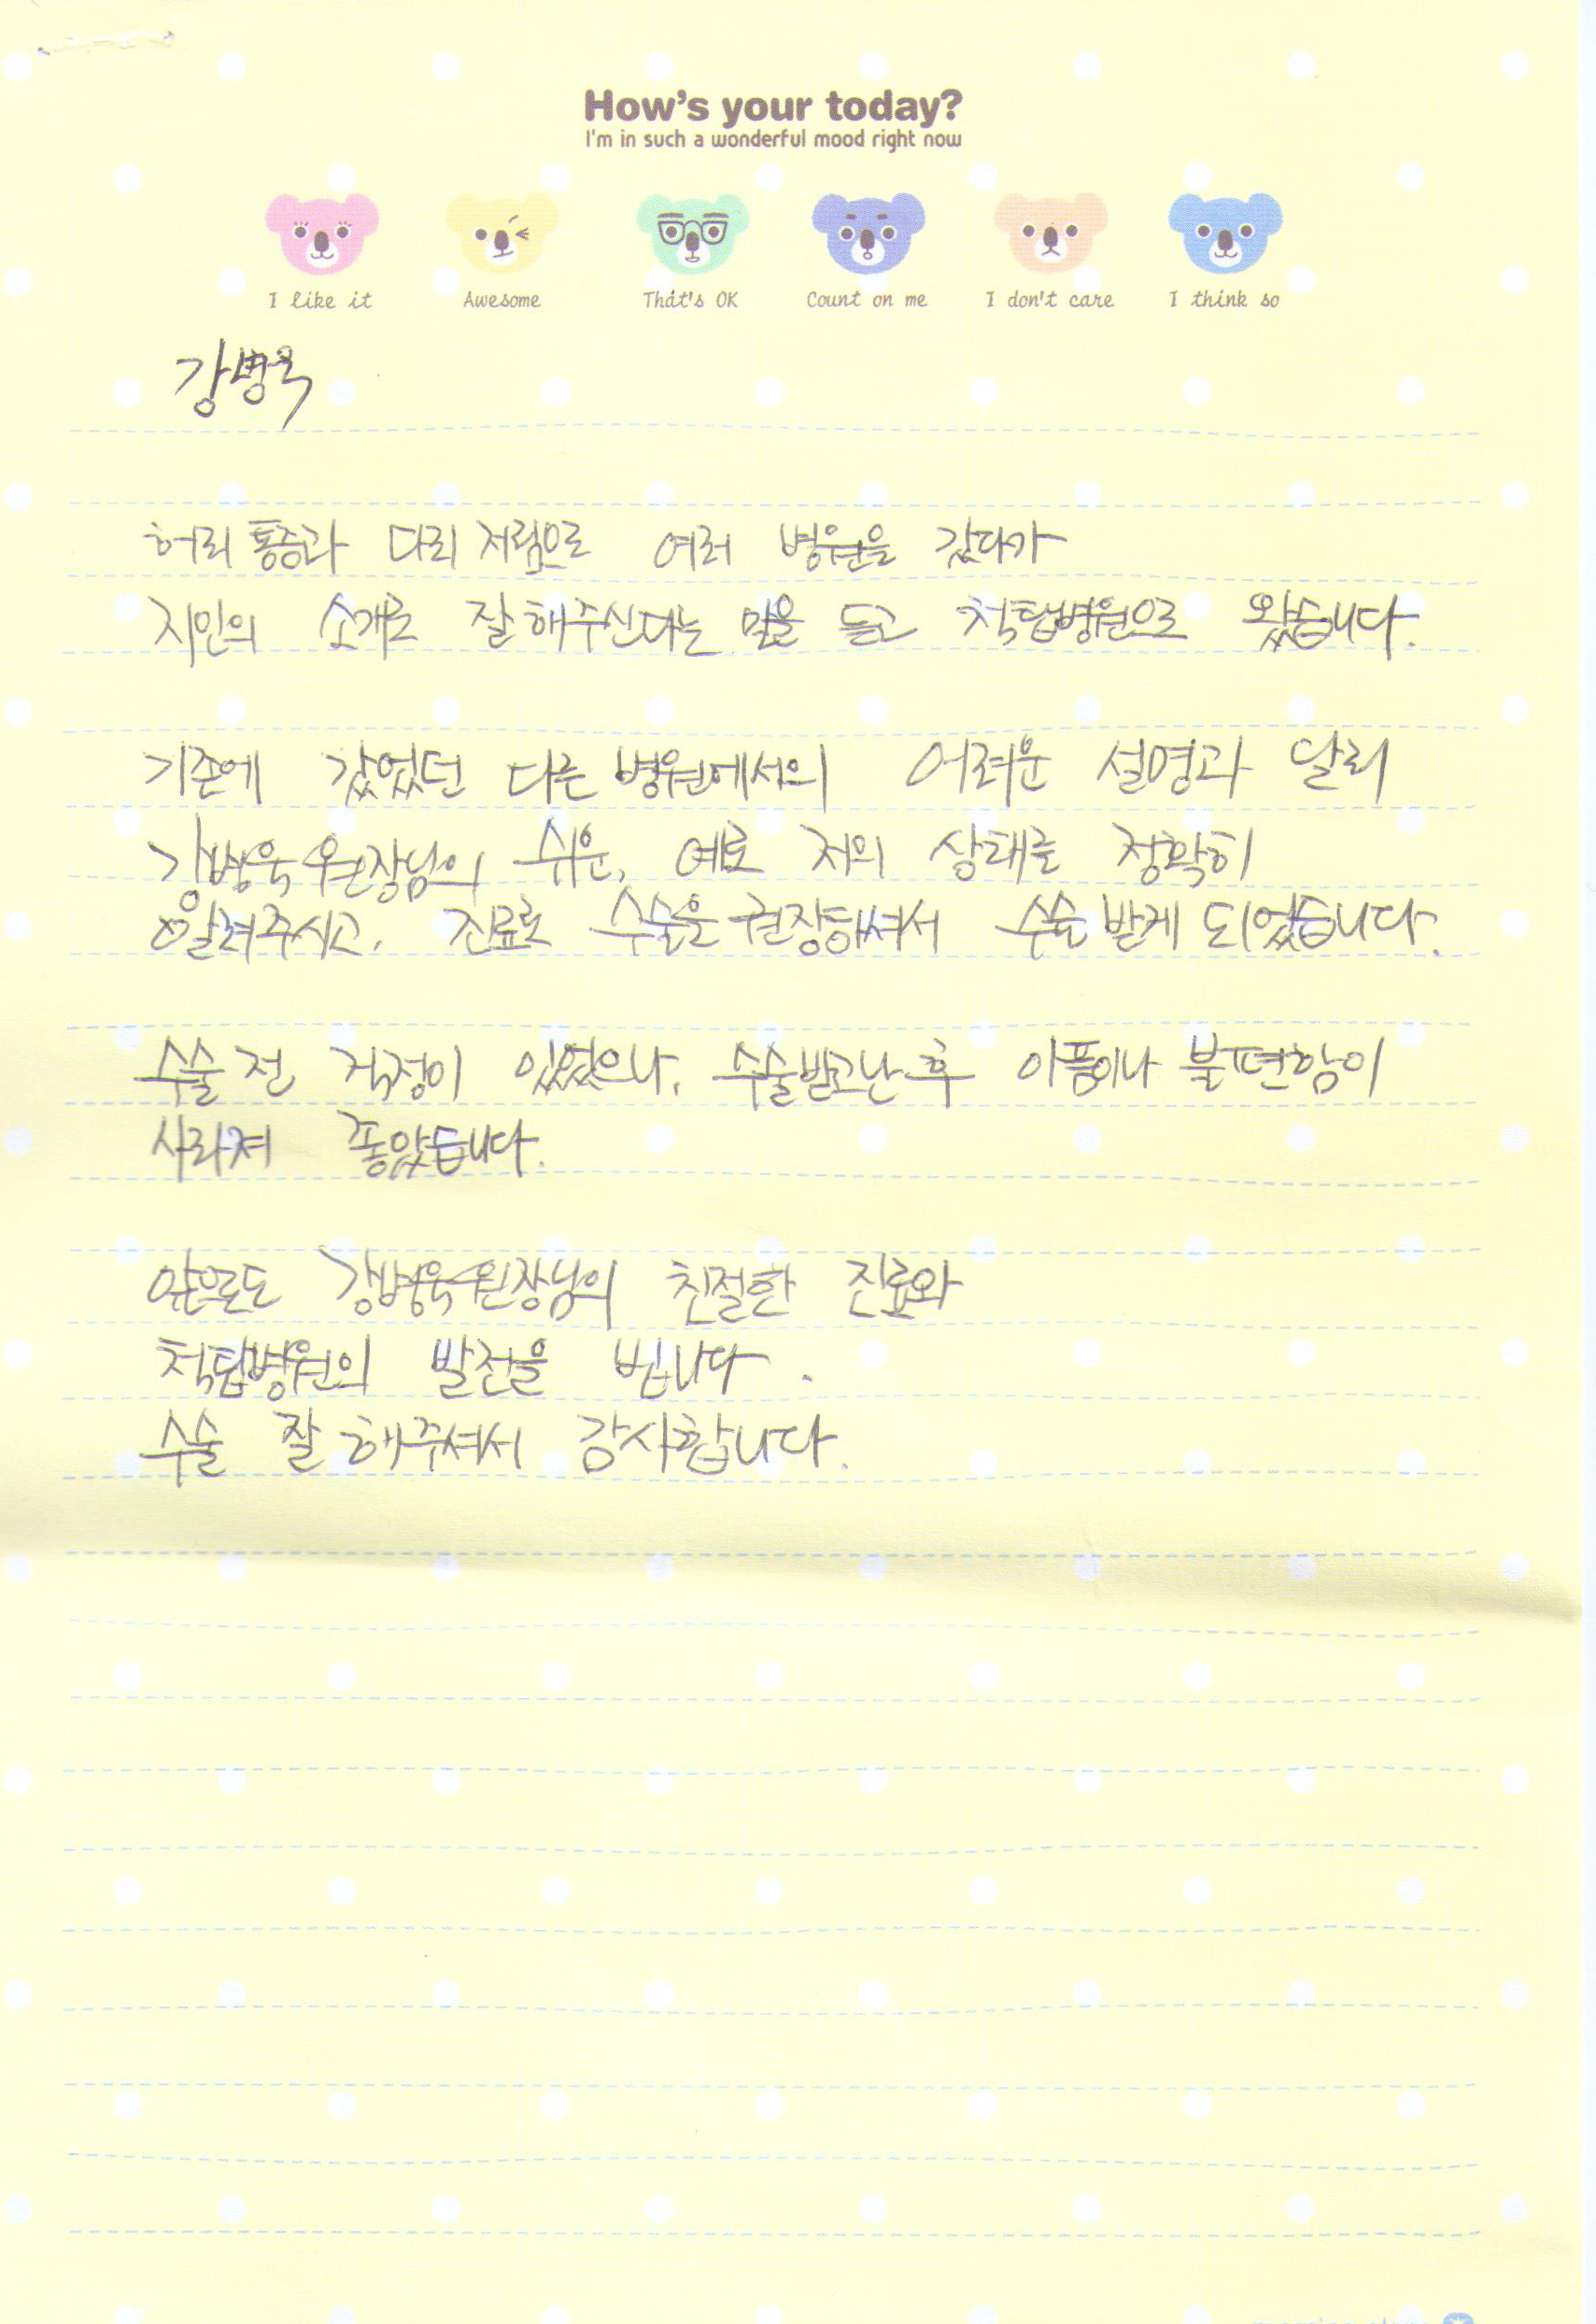 How's your today?
I'm in such a wonderful mood right now
I like it Awesome That's OK Count on me I don't care I think so
강병욱
허리 통증과 다리 저림으로 여러 병원을 갔다가
지인의 소개로 잘 해주신다는 말을 듣고 척탑병원으로 왔습니다.
기존에 갔었던 다른 병원에서의 어려운 설명과 달리
강병욱 원장님의 쉬운, 예로 저의 상태를 정확히
알려주시고, 진료로 수술을 권장하셔서 수술 받게 되었습니다.
수술 전 걱정이 있었으나, 수술받고난 후 아픔이나 불편함이
사라져 좋았습니다.
앞으로도 강병욱원장님의 친절한 진료와
척탑병원의 발전을 빕니다.
수술 잘 해주셔서 감사합니다.